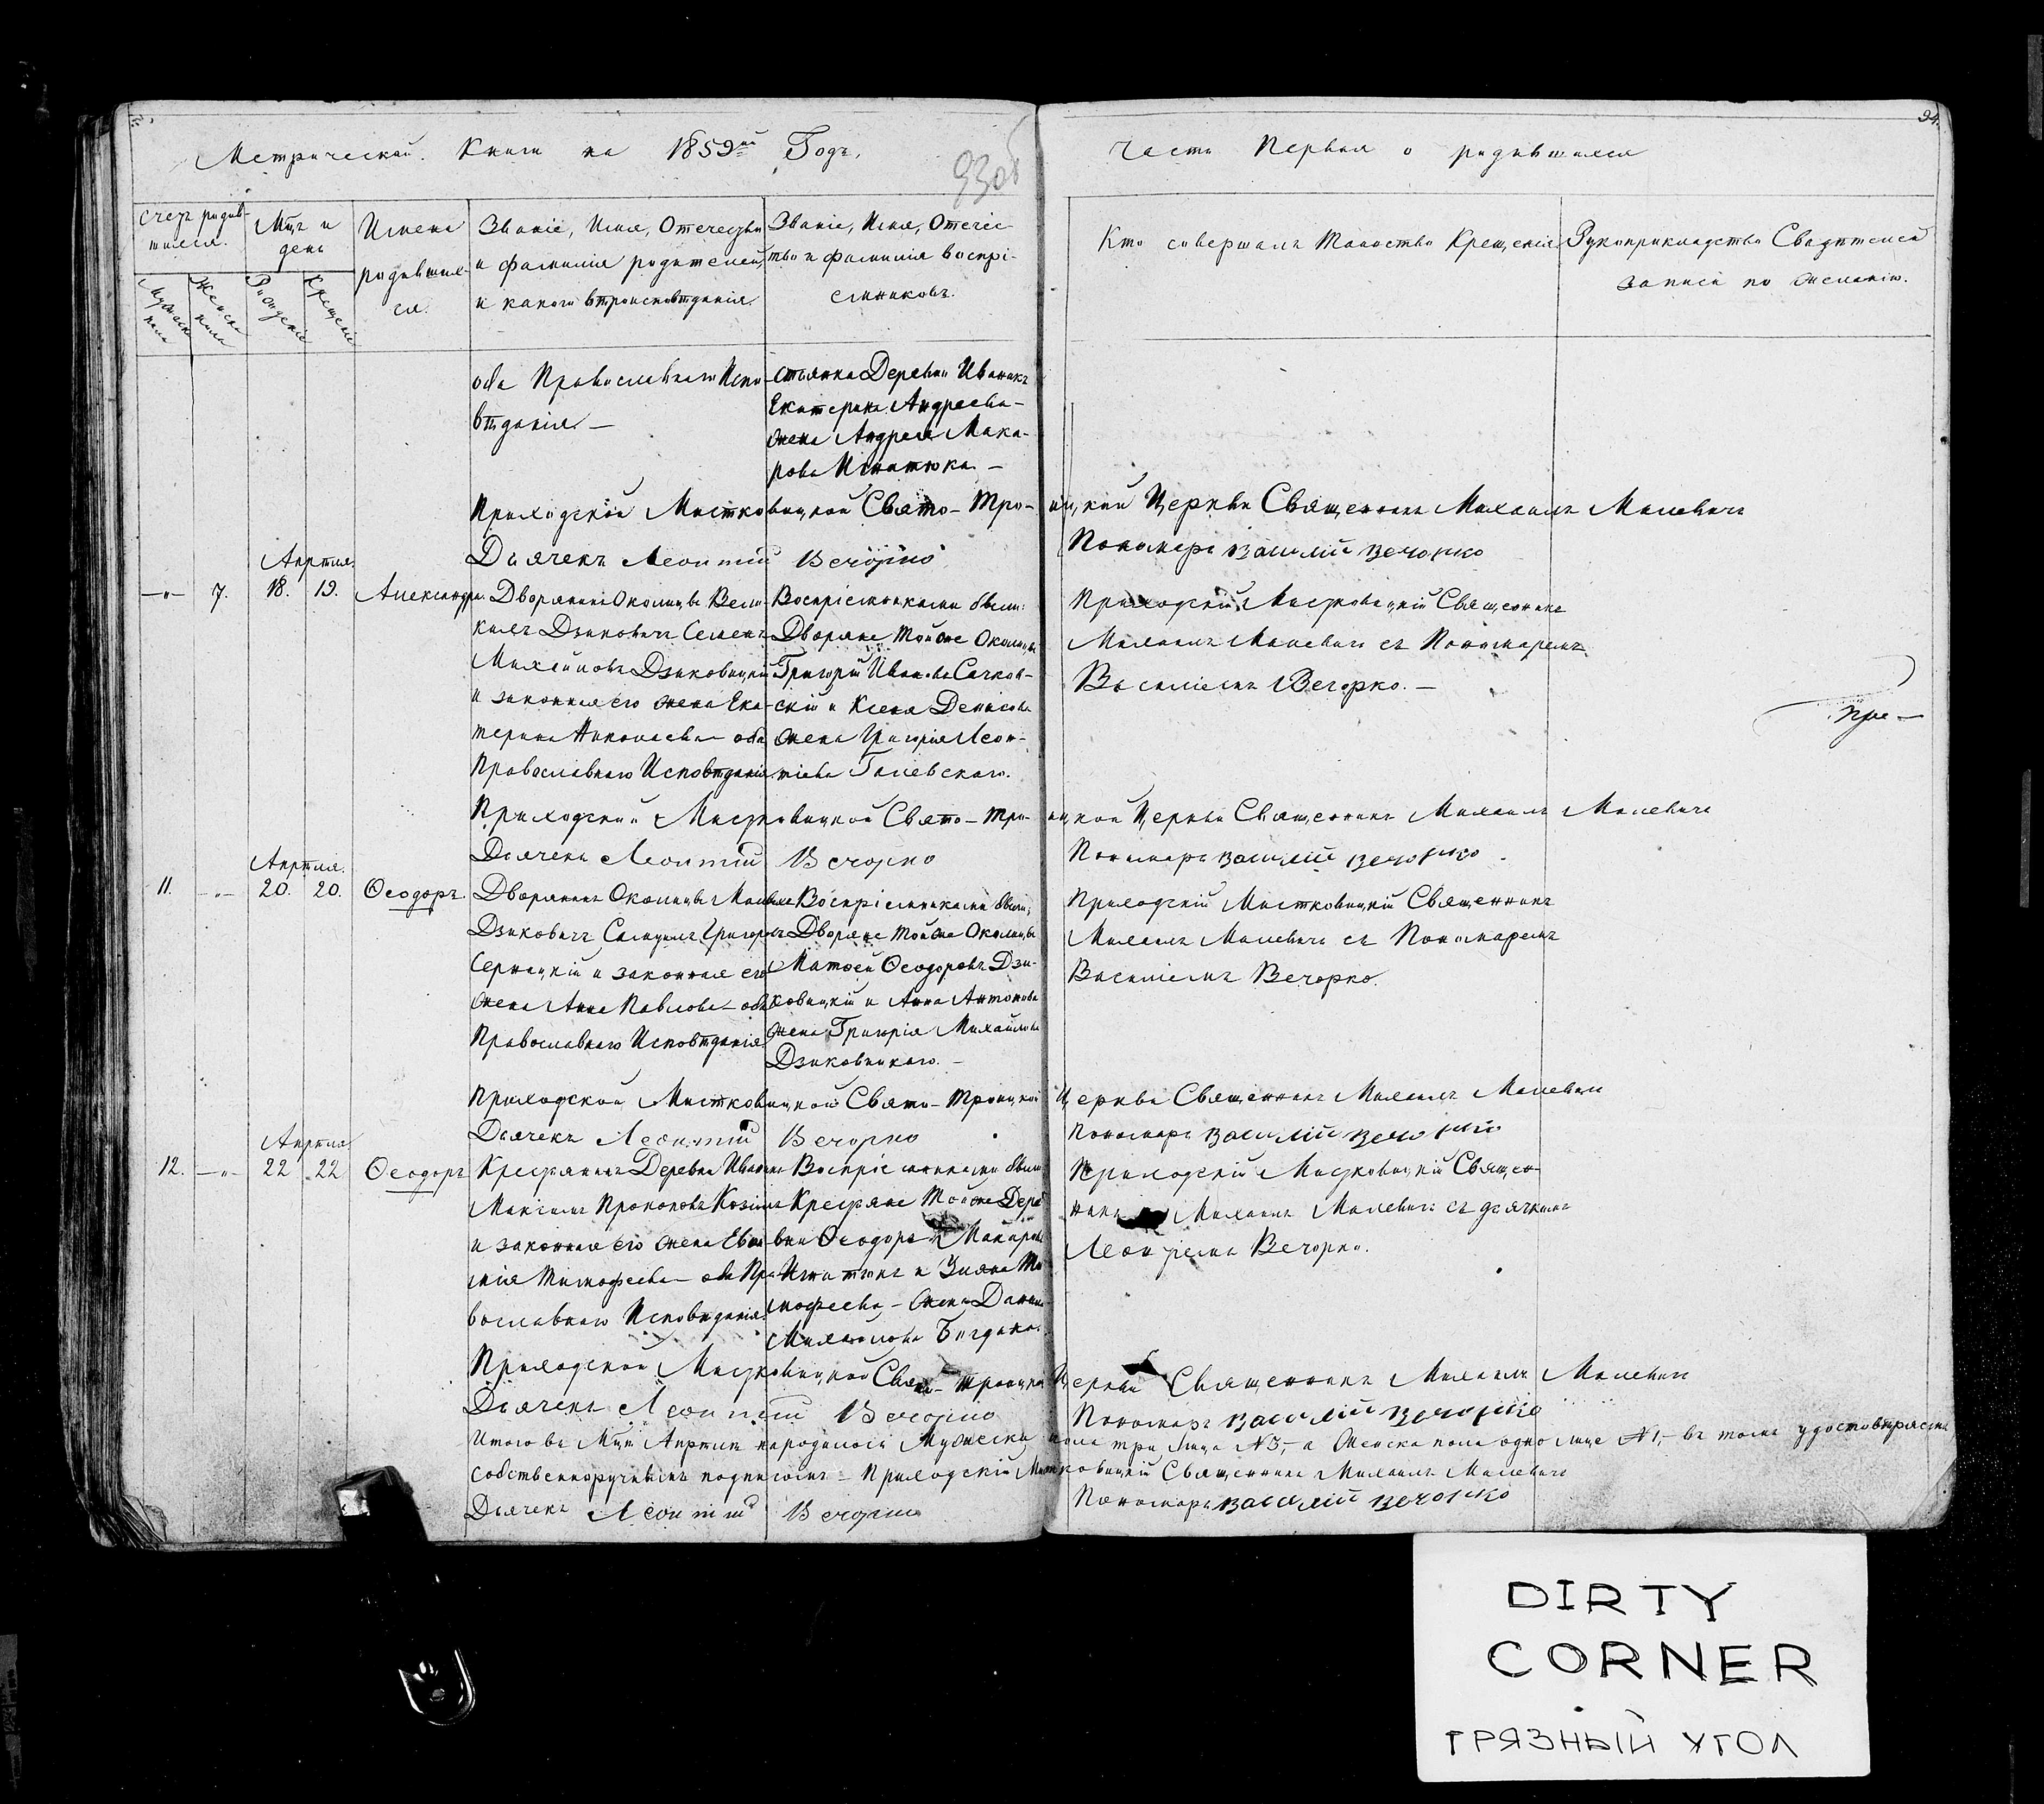 94.
Метрической Книги на 1859й Годъ.
93об
Части Первая о родившихся
Счетъ родив-
шихся.
Мужеска пола
Женска пола
Мцъ и
день
Рожденія
Крещенія
Имена
родивших-
ся.
Званіе, Имя, Отечество
и фамилія родителей,
и какого вѣроисповѣданія.
Званіе, Имя, Отечес-
тво и фамилія воспрі-
емниковъ.
Кто совершалъ Таинство Крещенія
Рукоприкладство Свидѣтелей
записи по желанію.
оба Православнаго Испо-
вѣданія. —
стьянка Деревни Иваникъ
Екатерина Андреева —
жена Андрея Мака-
рова Игнатюка. —
Приходской Мистковицкой Свято-Тро- ицкой Церкви Священникъ Михаилъ Малевичъ
Дьячекъ Леонтій Вечорко Пономарь Василій Вечорко
Апрѣля
—"— 7. 18. 19. Александра.
Дворянинъ Околицы Вели-
кихъ Дзиковичъ Семенъ
Михайловъ Дзиковицкій
и законная его жена Ека-
терина Николаева — оба
Православнаго Исповѣданія.
Воспріемниками были:
Дворяне той же Околицы
Григорій Ивановъ Сачков-
скій и Ксенія Денисова
жена Григорія Леон-
тіева Галевскаго.
Приходскій Мистковицкій Священникъ
Михаилъ Малевичъ съ Пономаремъ
Василіемъ Вечорко. —
пре —
Приходской Мистковицкой Свято-Тро- ицкой Церкви Священникъ Михаилъ Малевичъ
Дьячекъ Леонтій Вечорко Пономарь Василій Вечорко
Апрѣля.
11. —"— 20. 20. Ѳеодоръ.
Дворянинъ Околицы Малыхъ
Дзиковичъ Григоръ
Сернацкій и законная его
жена Анна Павлова — оба
Православнаго Исповѣданія.
Воспріемниками были;
Дворяне той же Околицы
Матѳей Ѳеодоровъ Дзи-
ковицкій и Анна Антонова
жена Григорія Михайлова
Дзиковицкаго. —
Приходскій Мистковицкій Священникъ
Михаилъ Малевичъ съ Пономаремъ
Василіемъ Вечорко.
Приходской Мистковицкой Свято-Троицкой Церкви Священникъ Михаилъ Малевичъ
Дьячекъ Леонтій Вечорко Пономарь Василій Вечорко
Апрѣля
12. —"— 22 22 Ѳеодоръ
Крестьянинъ Деревни Иваникъ
Максимъ Прокоповъ
и законная его жена Евѳи-
мія Тимофеева — оба Пра-
вославнаго Исповѣданія.
Воспріемниками были
Крестьяне той же Дере-
вни Ѳеодоръ Макаровъ
Игнатюкъ и Ти-
мофеева — жена Данила
Михайлова Богдана.
Приходскій Мистковицкій Священ-
никъ Михаилъ Малевичъ съ дьячкомъ
Леонтіемъ Вечорко.
Приходской Мистковицкой Свято-Троицкой Церкви Священникъ Михаилъ Малевичъ
Дьячекъ Леонтій Вечорко Пономарь Василій Вечорко
Итого въ Мцѣ Апрѣлѣ народилось Мужеска пола три лица №3, — а Женска пола одно лице №1, — въ томъ удостовѣряемъ
собственноручнымъ подписомъ — Приходскій Мистковицкій Священникъ Михаилъ Малевичъ
Дьячекъ Леонтій Вечорко Пономарь Василій Вечорко
DIRTY
CORNER
ГРЯЗНЫЙ УГОЛ